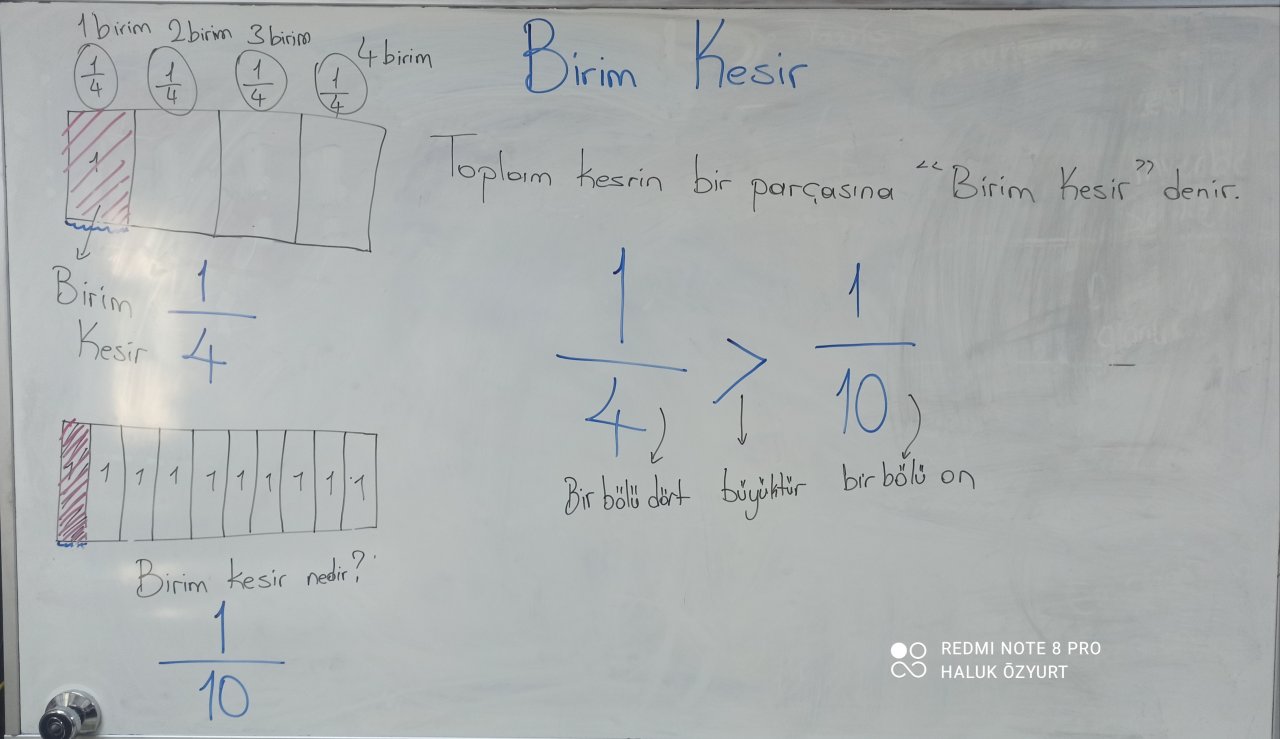 Birim Kesir
1 birim 2 birim 3 birim 4 birim
1/4 1/4 1/4 1/4
1
Birim
Kesir
1/4
Toplam kesrin bir parçasına “Birim Kesir” denir.
1/4 > 1/10
Bir bölü dört büyüktür bir bölü on
1 1 1 1 1 1 1 1 1 1
Birim kesir nedir?
1/10
REDMI NOTE 8 PRO
HALUK ÖZYURT